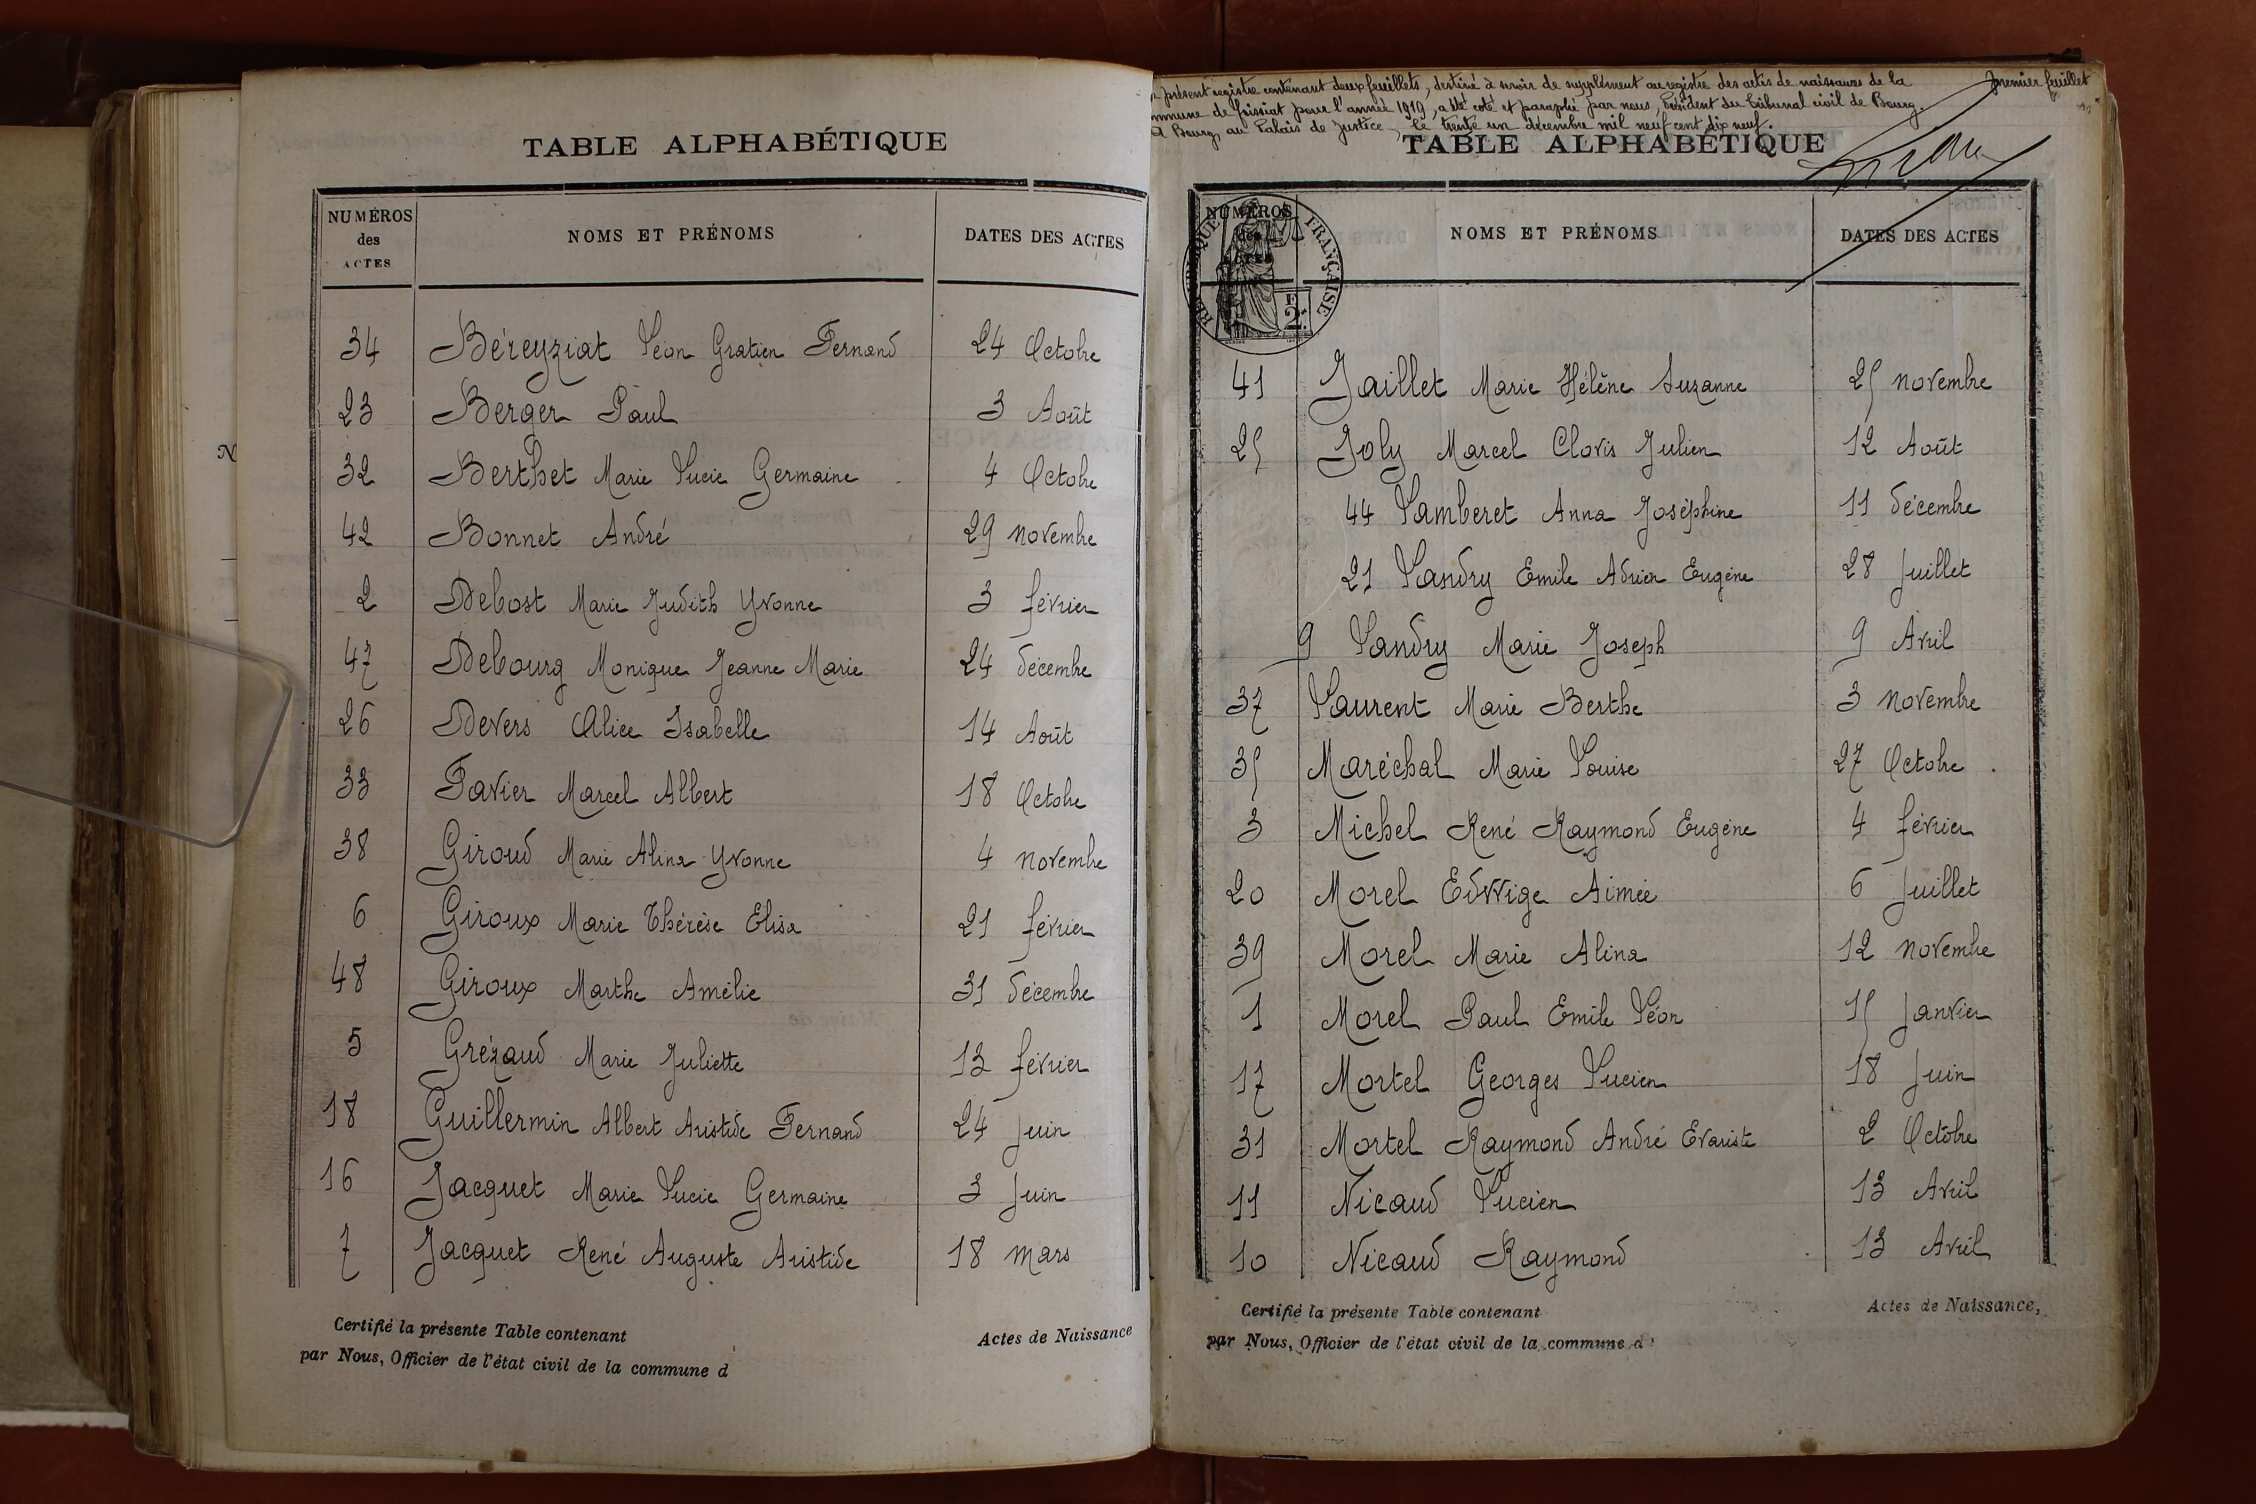 TABLE ALPHABÉTIQUE
NUMÉROS des ACTES NOMS ET PRÉNOMS DATES DES ACTES
34 Béreyziat Léon Gratien Fernand 24 Octobre
23 Berger Paul 3 Août
32 Berthet Marie Lucie Germaine 4 Octobre
42 Bonnet André 29 novembre
2 Debost Marie Judith Yvonne 3 février
47 Debourg Monique Jeanne Marie 24 décembre
26 Devers Alice Isabelle 14 Août
33 Favier Marcel Albert 18 Octobre
38 Giroud Marie Alina Yvonne 4 novembre
6 Giroux Marie Thérèse Elisa 21 février
48 Giroux Marthe Amélie 31 décembre
5 Grézaud Marie Juliette 13 février
18 Guillermin Albert Aristide Fernand 24 Juin
16 Jacquet Marie Lucie Germaine 3 Juin
7 Jacquet René Auguste Aristide 18 mars
Certifié la présente Table contenant Actes de Naissance
par Nous, Officier de l'état civil de la commune d
présent registre contenant deux feuillets, destiné à servir de supplément au registre des actes de naissance de la premier feuillet
commune de Foissiat pour l'année 1919, a été coté et paraphé par nous, Président du Tribunal civil de Bourg.
A Bourg, au Palais de Justice, le trente un décembre mil neuf cent dix neuf.
TABLE ALPHABÉTIQUE
NUMÉROS NOMS ET PRÉNOMS DATES DES ACTES
RÉPUBLIQUE FRANÇAISE
2F
41 Jaillet Marie Hélène Suzanne 25 novembre
25 Joly Marcel Clovis Julien 12 Août
44 Lamberet Anna Joséphine 11 décembre
21 Landry Emile Adrien Eugène 28 Juillet
9 Landry Marie Joseph 9 Avril
37 Laurent Marie Berthe 3 novembre
35 Maréchal Marie Louise 27 Octobre
3 Michel René Raymond Eugène 4 février
20 Morel Edwige Aimée 6 Juillet
39 Morel Marie Alina 12 novembre
1 Morel Paul Emile Léon 15 Janvier
17 Mortel Georges Lucien 18 Juin
31 Mortel Raymond André Evariste 2 Octobre
11 Nicaud Lucien 13 Avril
10 Nicaud Raymond 13 Avril
Certifié la présente Table contenant Actes de Naissance,
par Nous, Officier de l'état civil de la commune d